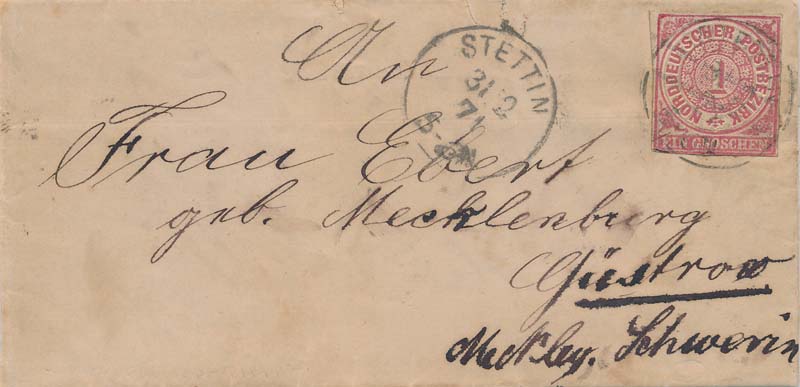 An
STETTIN
31 2
71
NORDDEUTSCHER POSTBEZIRK
1
EIN GROSCHEN
Frau Ebert
geb. Mecklenburg
Güstrow
Meckley. Schwerin